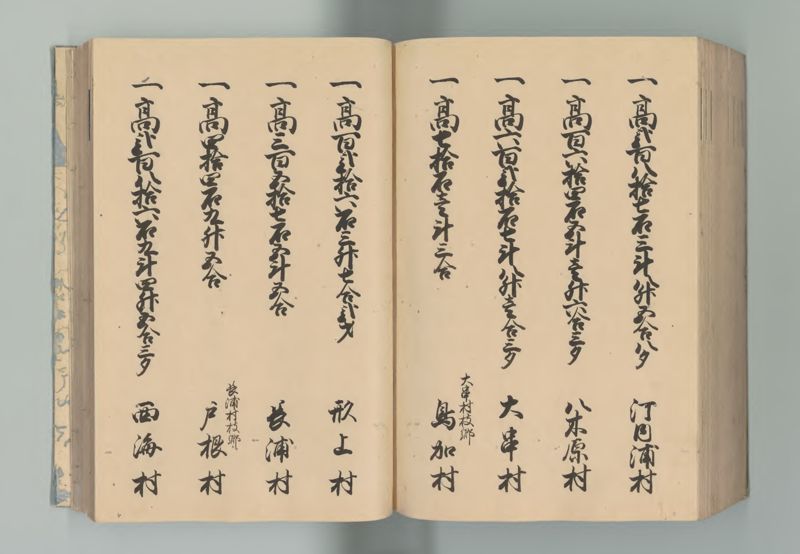 一高弐百八拾七石三斗八升五合八夕
河内浦村
一高百六拾四石五斗壱升六合三夕
八木原村
一高六百弐拾石七斗八升壱合三夕
大串村
一高七拾石壱斗三合
大串村枝郷
鳥加村
一高百弐拾六石三升七合弐才
形上村
一高三百五拾七石五斗五合
長浦村
一高四拾四石九升五合
長浦村枝郷
戸根村
一高弐百八拾六石九斗四升五合三夕
西海村